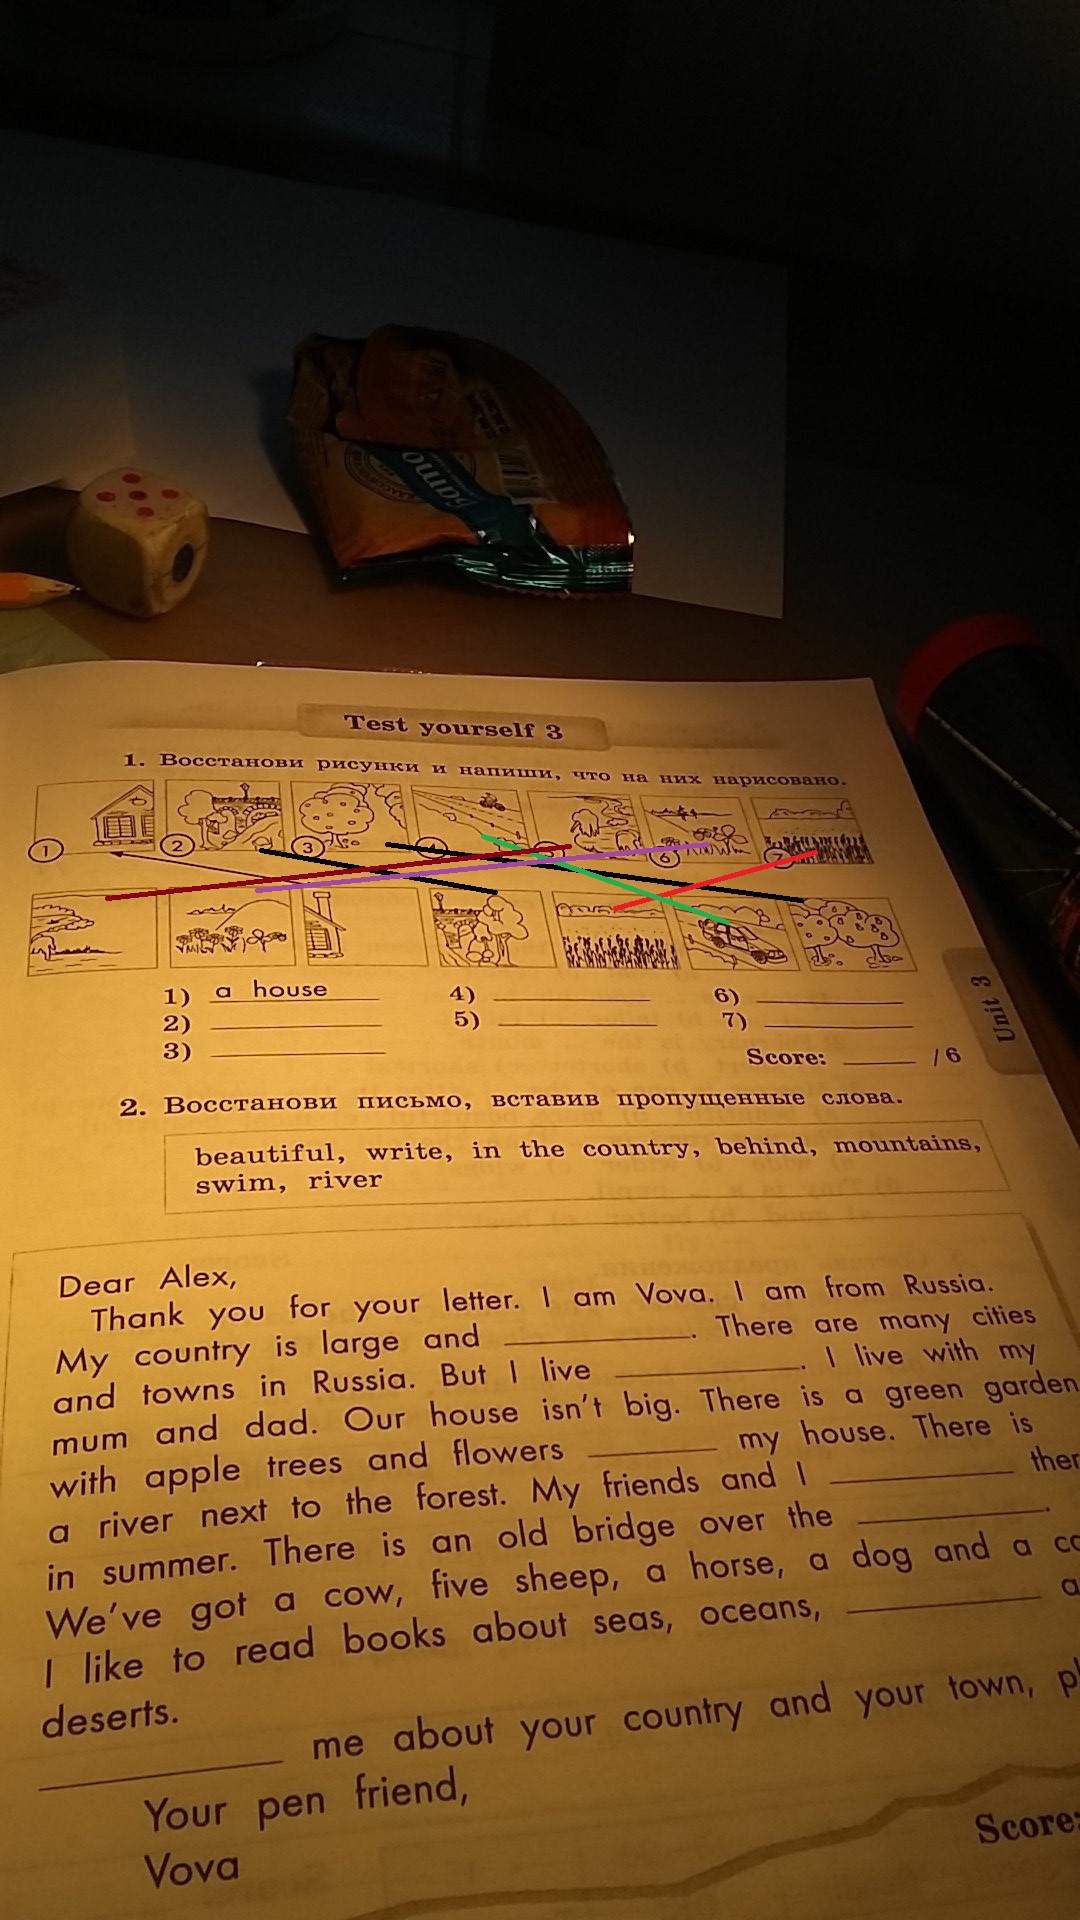 Бато
Test yourself 3
1. Восстанови рисунки и напиши, что на них нарисовано.
1 2 3 4 6 7
1) a house 4) 6)
2) 5) 7)
3)
Score: /6
Unit 3
2. Восстанови письмо, вставив пропущенные слова.
beautiful, write, in the country, behind, mountains,
swim, river
Dear Alex,
Thank you for your letter. I am Vova. I am from Russia.
My country is large and . There are many cities
and towns in Russia. But I live . I live with my
mum and dad. Our house isn't big. There is a green garden
with apple trees and flowers my house. There is
a river next to the forest. My friends and I ther
in summer. There is an old bridge over the .
We've got a cow, five sheep, a horse, a dog and a ca
I like to read books about seas, oceans, a
deserts.
me about your country and your town, pl
Your pen friend,
Vova
Score: